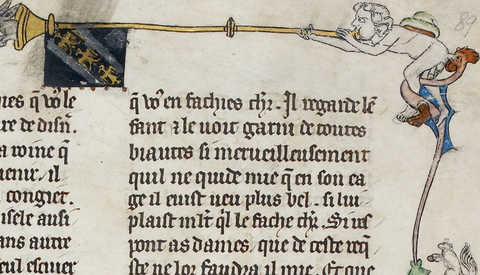 89
nies q̃ vo9 le
re de disn̄.
a roine q̃
uenir. il
congiet.
isele ausi
ans autre
eul escuier
q̃ vo9 en fachies chr̃. Il regarde lē
fant ⁊ le uoit garni de toutes
biautes si merueilleusement
quil ne quide mie q̃ en son ea
ge il eust veu plus bel. si lui
plaist ml̃t q̃l le fache chr̃. Si res
pont as dames. que de ceste req̃
ste ne lor faudra il mie. Et que